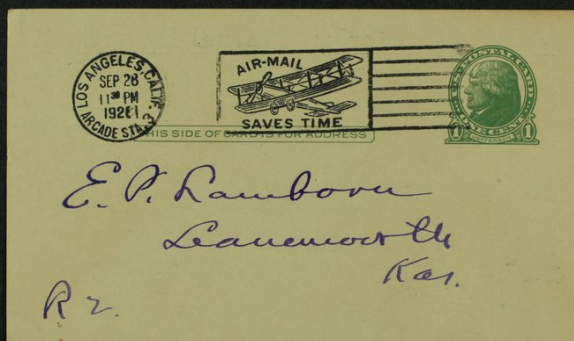 LOS ANGELES, CALIF.
SEP 28
11 30 PM
1926
ARCADE STA. 3
AIR-MAIL
SAVES TIME
U.S. POSTAL CARD
1 ONE CENT 1
THIS SIDE OF CARD IS FOR ADDRESS
E. P. Lamborn
Leavenworth
Kas.
R 2.